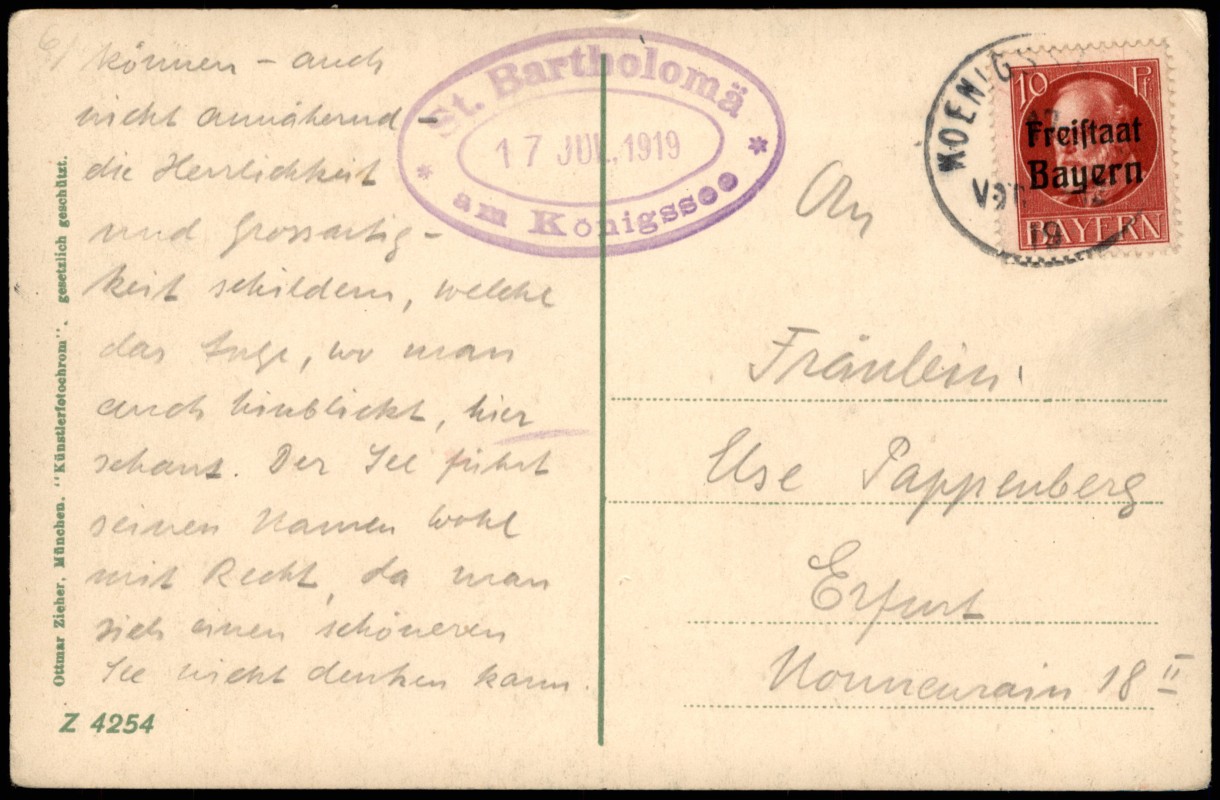 6/
können – auch
nicht annähernd –
die Herrlichkeit
und Grossartig-
keit schildern, welche
das Auge, wo man
auch hinblickt, hier
schaut. Der See führt
seinen Namen wohl
mit Recht, da man
sich einen schöneren
See nicht denken kann.
St. Bartholomä
17 JUL. 1919
am Königssee
KOENIGS
19
10 Pf
Freistaat
Bayern
BAYERN
An
Fräulein
Ilse Pappenberg
Erfurt
Nonnenrain 18 II
Ottmar Zieher, München. "Künstlerfotochrom". gesetzlich geschützt.
Z 4254